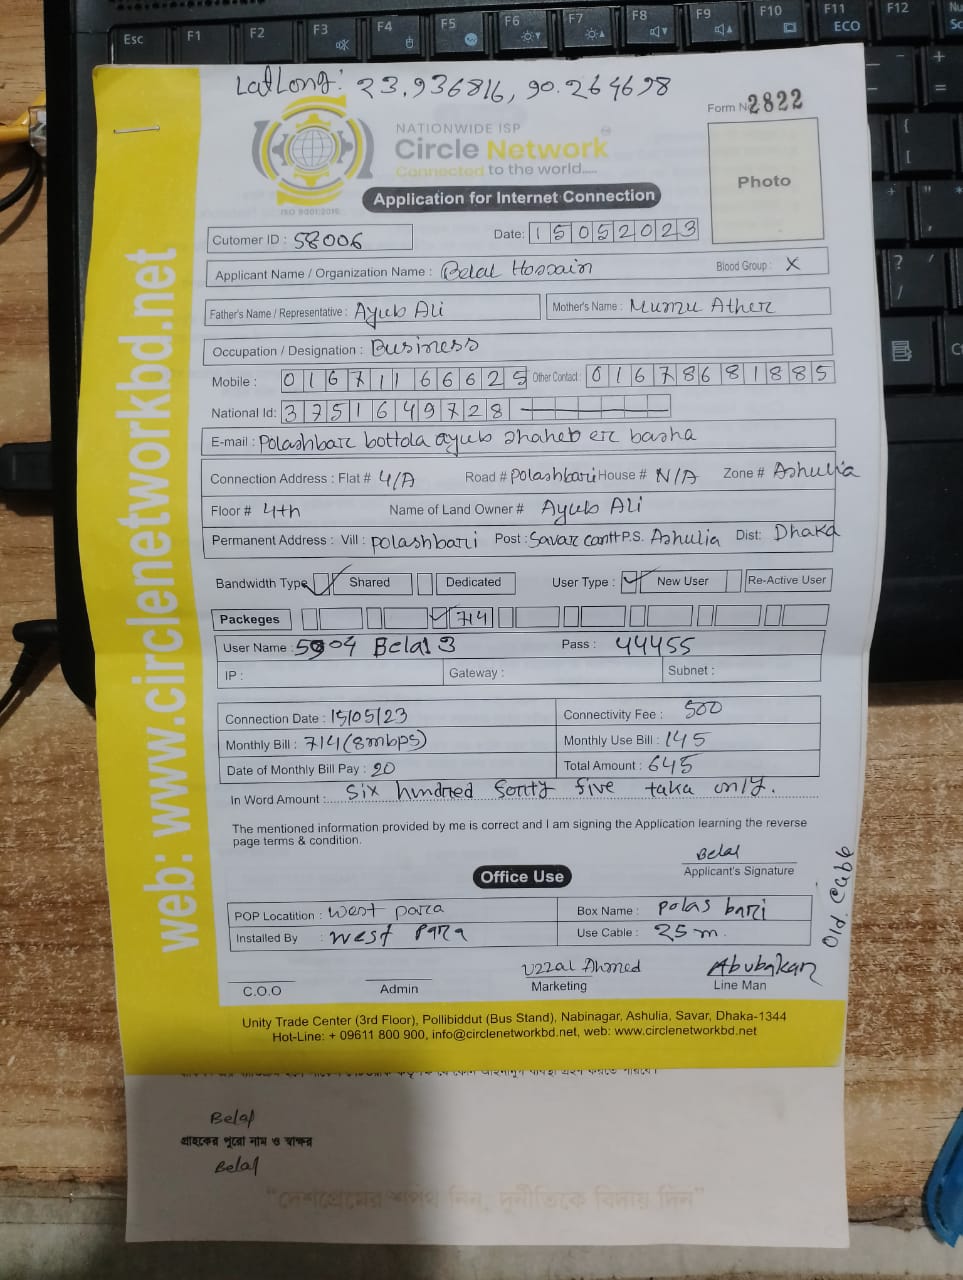 LatLong: 23.936816, 90.264698
Form No 2822
NATIONWIDE ISP
Circle Network
Connected to the world.....
ISO 9001:2015
Photo
Application for Internet Connection
Cutomer ID : 58006
Date: 15052023
Applicant Name / Organization Name : Belal Hossain
Blood Group : X
Father's Name / Representative : Ayub Ali
Mother's Name : Mumzu Ather
Occupation / Designation : Business
Mobile : 01671166625 Other Contact: 01678681885
National Id: 3751649728
E-mail : polashbare bottola ayub shaheb er basha
Connection Address : Flat # 4/A Road # polashbari House # N/A Zone # Ashulia
Floor # 4th Name of Land Owner # Ayub Ali
Permanent Address : Vill : polashbari Post : Savar cantt P.S. Ashulia Dist: Dhaka
Bandwidth Type Shared Dedicated User Type : New User Re-Active User
Packeges 714
User Name : 5904 Belal 3 Pass : 44455
IP : Gateway : Subnet :
Connection Date : 15/05/23 Connectivity Fee : 500
Monthly Bill : 714 (8mbps) Monthly Use Bill : 145
Date of Monthly Bill Pay : 20 Total Amount : 645
In Word Amount : six hundred forty five taka only.
The mentioned information provided by me is correct and I am signing the Application learning the reverse
page terms & condition.
Belal
Applicant's Signature
Office Use
POP Locatition : west para Box Name : polas bari
Installed By : west para Use Cable : 25m.
Old. Cable
Uzzal Ahmed Abubakar
C.O.O Admin Marketing Line Man
Unity Trade Center (3rd Floor), Pollibiddut (Bus Stand), Nabinagar, Ashulia, Savar, Dhaka-1344
Hot-Line: + 09611 800 900, info@circlenetworkbd.net, web: www.circlenetworkbd.net
web: www.circlenetworkbd.net
Belal
গ্রাহকের পুরো নাম ও স্বাক্ষর
Belal
"দেশপ্রেমের শপথ নিন, দুর্নীতিকে বিদায় দিন"
Esc F1 F2 F3 F4 F5 F6 F7 F8 F9 F10 F11 F12
ECO